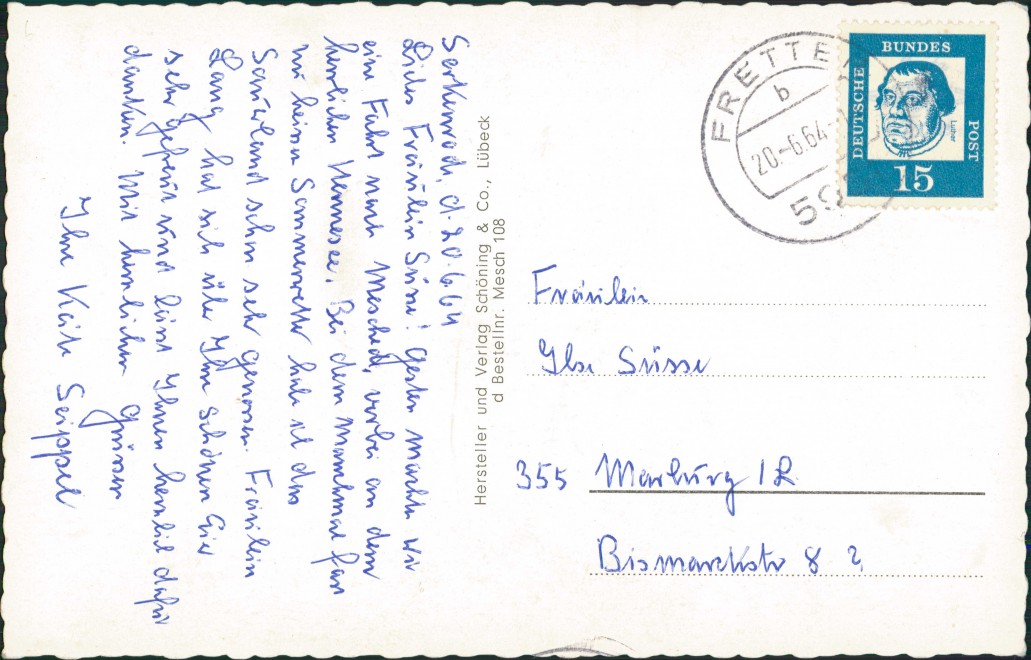 Serkenrode, d. 20.6.64
Liebes Fräulein Süsse! Gestern machten wir
eine Fahrt nach Meschede, vorbei an dem
herrlichen Hennesee. Bei dem manchmal fast
zu heissen Sommerwetter habe ich das
Sauerland schon sehr genossen. Fräulein
Lang hat sich über Ihre schönen Eier
sehr gefreut und lässt Ihnen herzlich dafür
danken. Mit herzlichen Grüssen
Ihre Käte Seippel
Hersteller und Verlag Schöning & Co., Lübeck
d Bestellnr. Mesch 108
FRETTER
b
20.-6.64
59
DEUTSCHE
BUNDES
POST
Luther
15
Fräulein
Ilse Süsse
355 Marburg / L
Bismarckstr 8